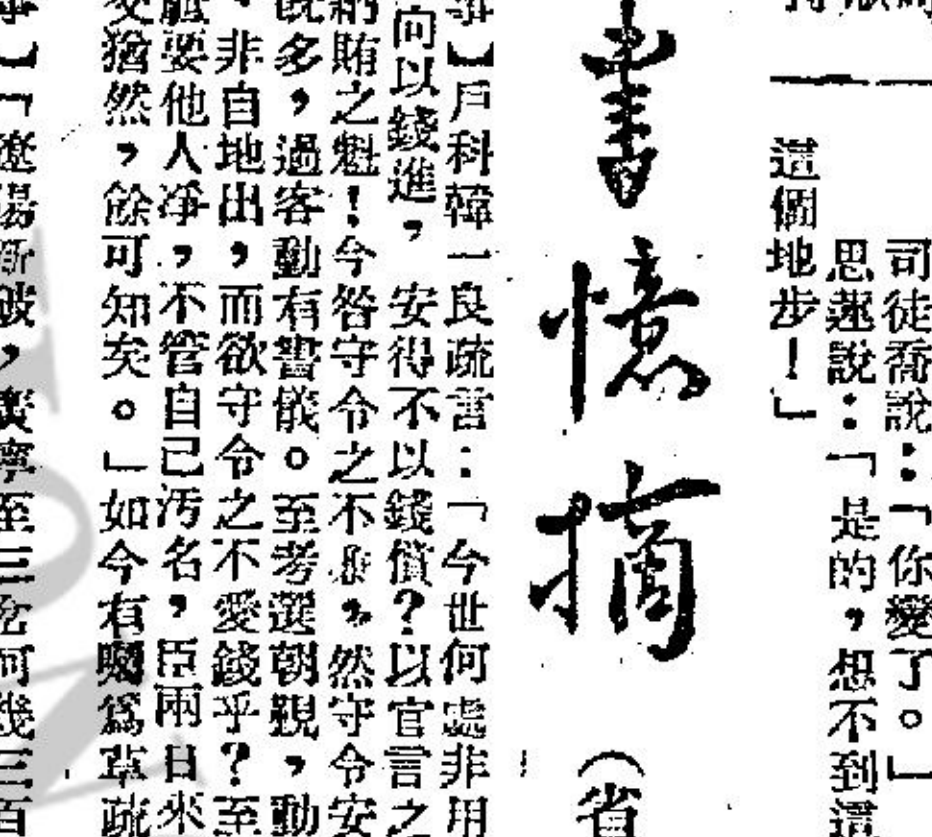 司徒喬說：「你變了。」
思蓮說：「是的，想不到這
這個地步！」
書憶摘
（省
】戶科韓一良疏言：「今世何處非用
向以錢進，安得不以錢償？以官言之
納賄之魁！今咎守令之不廉。然守令安
既多，過客動有書儀。至考選朝覲，動
，非自地出，而欲守令之不愛錢乎？至
要他人淨，不管自己汚名，臣兩日來
猶然，餘可知矣。」如今有囑爲草疏
】「遼陽新破，廣寧至三岔河幾三百